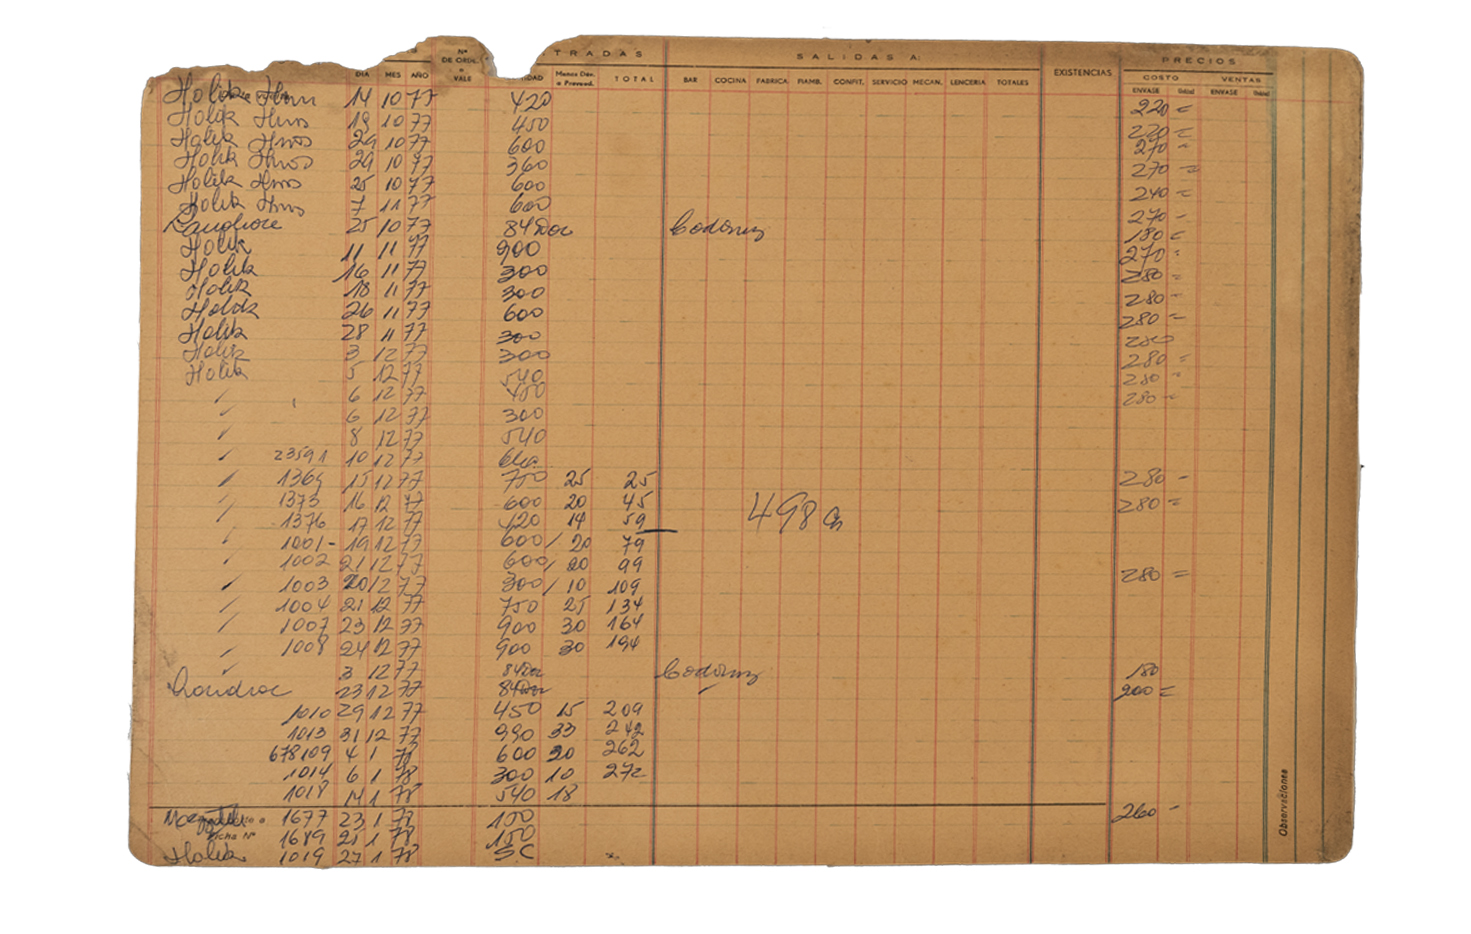 TRADAS SALIDAS A: PRECIOS
Nº DE ORDE. o VALE EXISTENCIAS COSTO VENTAS
DIA MES AÑO IDAD TOTAL BAR COCINA FABRICA FIAMB. CONFIT. SERVICIO MECAN. LENCERIA TOTALES ENVASE Unidad ENVASE Unidad
Holik Hnos 14 10 77 420 220 =
Holik Hnos 19 10 77 450 220 =
Holik Hnos 29 10 77 600 270 -
Holik Hnos 29 10 77 360 270 =
Holik Hnos 25 10 77 600 240 =
Holik Hnos 7 11 77 600 270 -
25 10 77 84 Doc Codorniz 180 =
Holik 11 11 77 900 270 -
Holik 16 11 77 300 280 =
Holik 18 11 77 300 280 -
Holik 26 11 77 600 280 =
Holik 28 11 77 300 280
Holik 3 12 77 300 280 =
Holik 5 12 77 540 280 =
" 6 12 77 450 280 =
" 6 12 77 300
" 8 12 77 540
" 23591 10 12 77
" 1369 15 12 77 750 25 25 280 -
" 1373 16 12 77 600 20 45 280 =
" 1376 17 12 77 420 14 59 498
" 1001 - 19 12 77 600 / 20 79
" 1002 21 12 77 600 / 20 99
" 1003 20 12 77 300 / 10 109 280 =
" 1004 21 12 77 750 25 134
" 1007 23 12 77 900 30 164
" 1008 24 12 77 900 30 194
" 3 12 77 84 Doc Codorniz 180
23 12 77 84 Doc 200 =
1010 29 12 77 450 15 209
1013 31 12 77 990 33 242
678109 4 1 78 600 20 262
1014 6 1 78 300 10 272
1018 14 1 78 540 18
1677 23 1 78 150 260 -
Ficha Nº 1689 21 1 78 150
Holik 1019 27 1 78
Observaciones